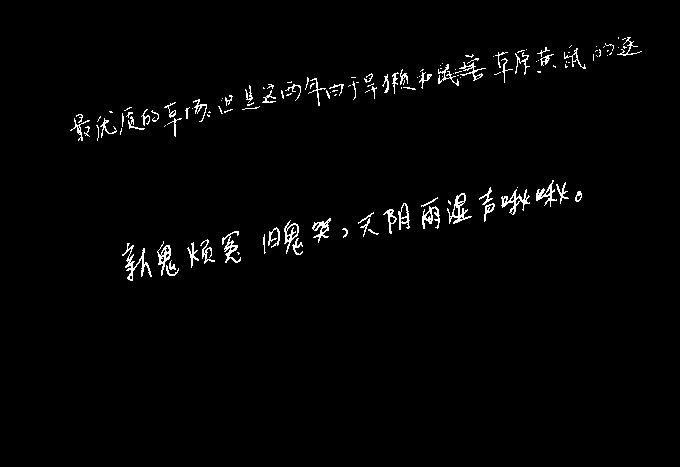 最优质的草场，但是这两年由于旱獭和草原黄鼠的逐
新鬼烦冤旧鬼哭，天阴雨湿声啾啾。